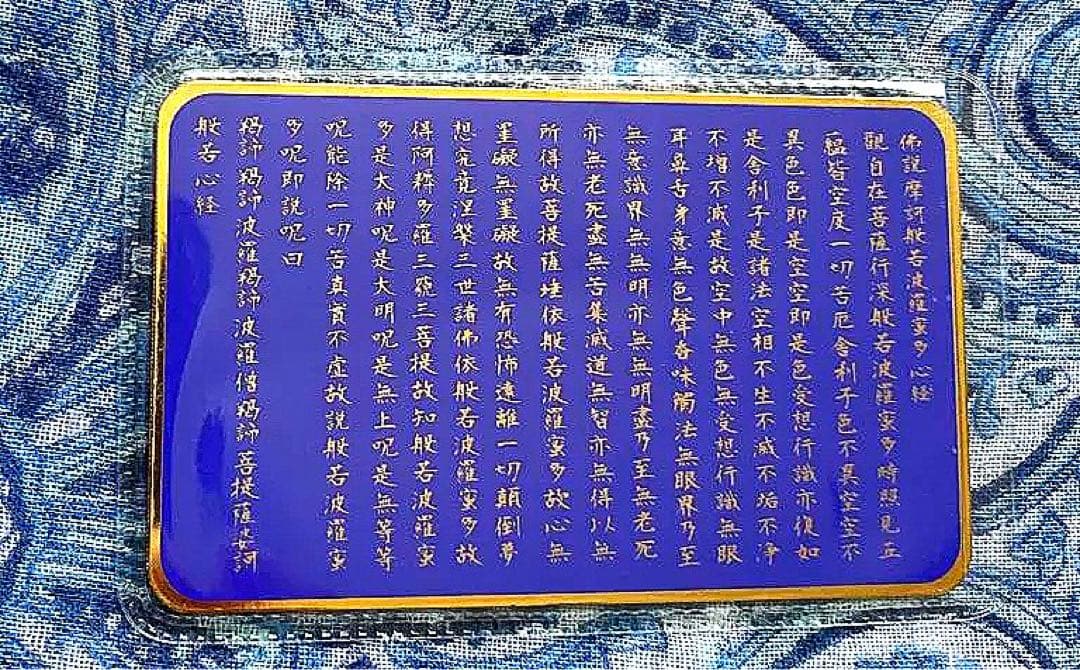 佛説摩訶般若波羅蜜多心経
観自在菩薩行深般若波羅蜜多時照見五
蘊皆空度一切苦厄舎利子色不異空空不
異色色即是空空即是色受想行識亦復如
是舎利子是諸法空相不生不滅不垢不浄
不増不減是故空中無色無受想行識無眼
耳鼻舌身意無色聲香味觸法無眼界乃至
無意識界無無明亦無無明盡乃至無老死
亦無老死盡無苦集滅道無智亦無得以無
所得故菩提薩埵依般若波羅蜜多故心無
罣礙無罣礙故無有恐怖遠離一切顛倒夢
想究竟涅槃三世諸佛依般若波羅蜜多故
得阿耨多羅三藐三菩提故知般若波羅蜜
多是大神呪是大明呪是無上呪是無等等
呪能除一切苦真實不虚故説般若波羅蜜
多呪即説呪曰
羯諦羯諦波羅羯諦波羅僧羯諦菩提薩婆訶
般若心経